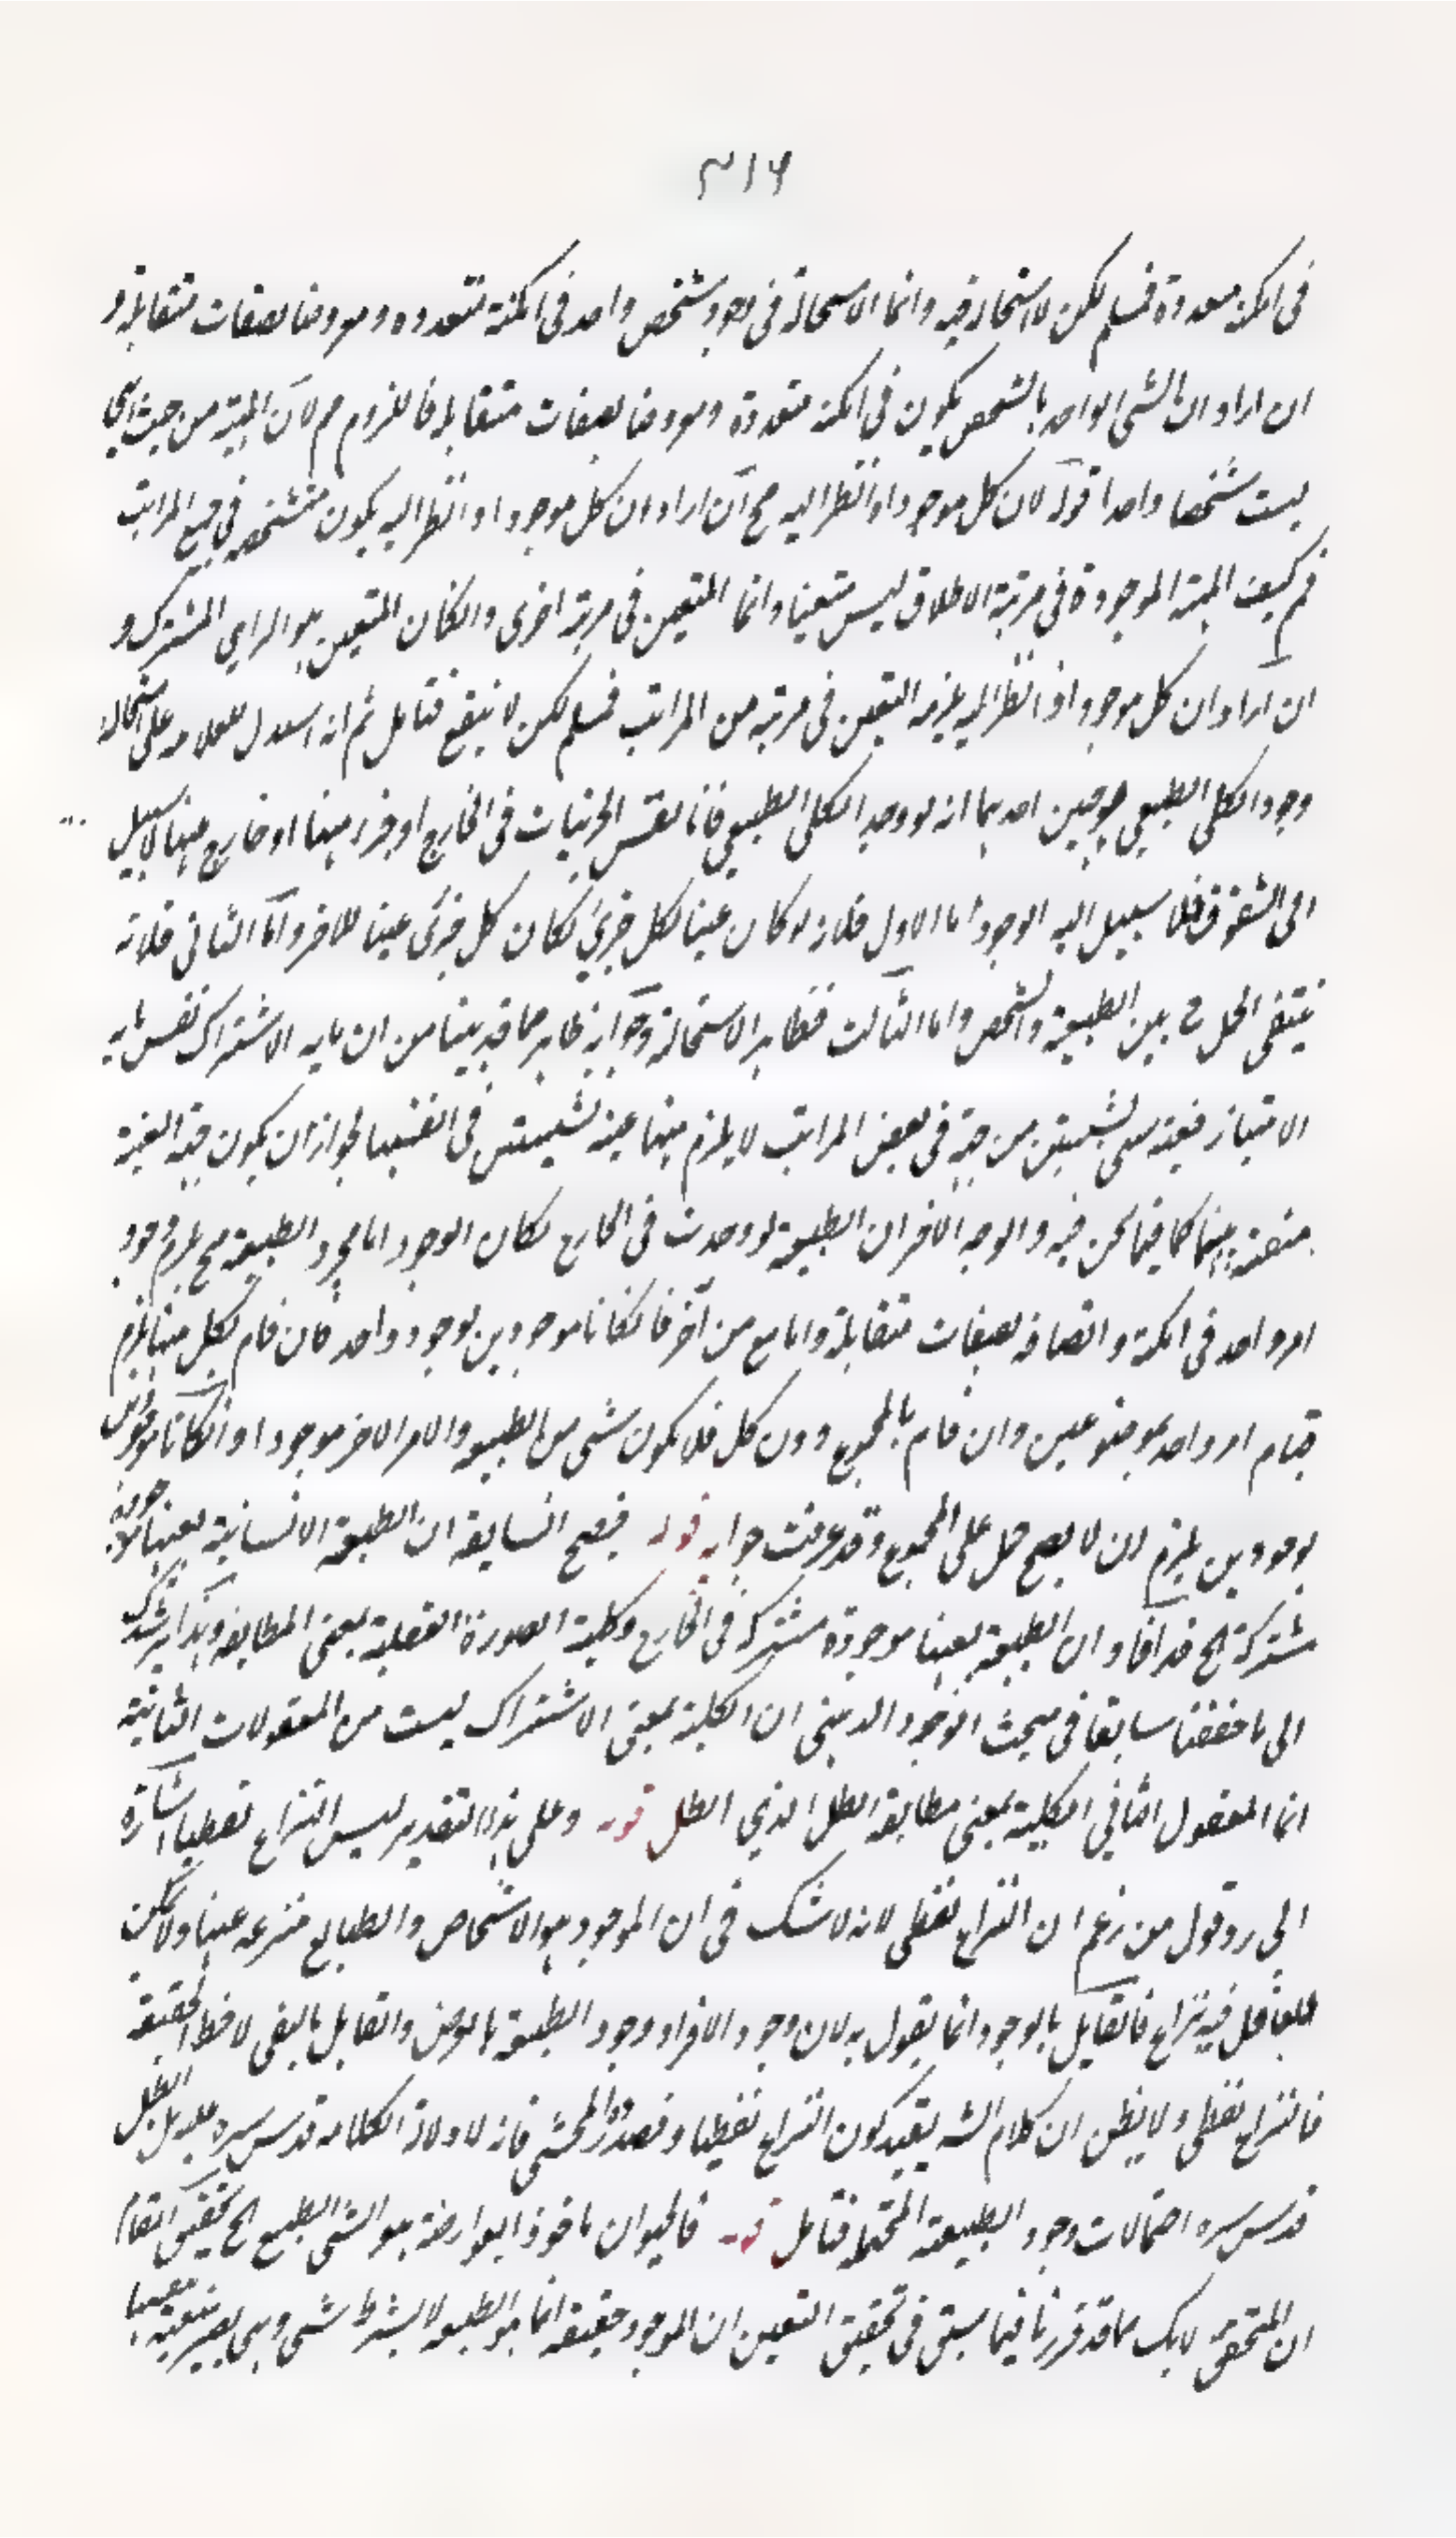 ٣١٦
فى امكنة متعددة فمسلم لكن لا استحالة فيه وانما الاستحالة فى وجود شخص واحد فى امكنة متعدده ومعروضا بصفات متقابلة و
ان اراد ان الشى الواحد بالشخص يكون فى امكنة متعددة ومعروضا بصفات متقابلة فاللزوم مم لان المهية من حيث هى
ليست شخصا واحدا قوله لان كل موجود اذا نظر اليه مح ان اراد ان كل موجود اذا نظر اليه يكون متشخصه فى جميع المراتب
فم كيف المهية الموجودة فى مرتبة الاطلاق ليس متعينا وانما المتعين فى مرتبة اخرى والكان المتعين هو الراى المشترك و
ان اراد ان كل موجود اذا نظر اليه يلزمه التعين فى مرتبة من المراتب فمسلم لكن لا ينفع فتامل ثم انه استدل العلامه على استحالة
وجود الكلى الطبيعى بوجهين احدهما انه لو وجد الكلى الطبيعى فاما نفس الجزئيات فى الخارج او جزء منها او خارج عنها لا سبيل
الى الشقوق فلا سبيل اليه الوجود اما الاول فلانه لو كان عينا لكل جزئى لكان كل جزئى عينا للاخر واما الثانى فلانه
ينتفى الحمل ح بين الطبيعة والشخص واما الثالث فظاهر الاستحالة وجوابه ظاهر مما قد بينا من ان ما به الاشتراك نفس ما به
الامتياز فعينية شى لشيئين من جهة فى بعض المراتب لا يلزم منها عينية الشيئين فى انفسهما لجواز ان يكون جهة العينية
منفية بينهما كما فيما نحن فيه والوجه الاخر ان الطبيعة لو وجدت فى الخارج لكان الوجود اما مجرد الطبيعة مح يلزم وجود
امر واحد فى امكنة واتصافه بصفات متقابلة واما مع امر آخر فاما كانا موجودين بوجود واحد فان قام بكل منهما لزم
قيام امر واحد بموضوعين وان قام بالمجموع دون كل فلا يكون شى من الطبيعة والامر الاخر موجودا وان كانا موجودين
بوجودين يلزم ان لا يصح حمل على المجموع وقد عرفت جوابه قوله فيصح السابقة ان الطبيعة الانسانية بعينها موجودة
مشتركة الخ قد افاد ان الطبيعة بعينها موجودة مشتركة فى الخارج وكلية الصورة العقلية بمعنى المطابقة وهذا يرشدك
الى ما حققنا سابقا فى مبحث الوجود الذهنى ان الكلية بمعنى الاشتراك ليست من المعقولات الثانية
انما المعقول الثانى الكلية بمعنى مطابقة الظل الذى الظل قوله وعلى هذا التقدير ليس النزاع لفظيا اشارة
الى رد قول من زعم ان النزاع لفظى لانه لا شك فى ان الموجود هو الاشخاص والطبايع منتزعه عنها ولا يمكن
للعاقل فيه نزاع فالقايل بالوجود انما يقول به لان وجود الافراد وجود الطبيعة بالعرض والقايل بالنفى لاحظ الحقيقة
فالنزاع لفظى ولا يظن ان كلام الشه يفيد كون النزاع لفظيا وقصد رد المحشى فانه لا دلالة لكلامه قدس سره عليه بل ابطل
قدس سره احتمالات وجود الطبيعة المحتملة فتامل قوله فالحيوان ماخوذا بعوارضه هو الشى الطبيعى الخ تحقيق المقام
ان المتحقق لديك مما قد قررنا فيما سبق فى تحقيق التعين ان الموجود حقيقة انما هو الطبيعة لا بشرط شى وهى بعينها متعينة